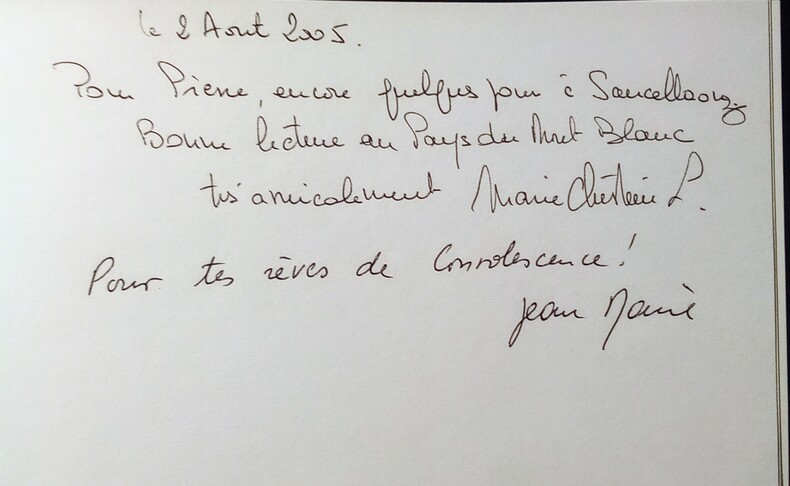 le 2 Aout 2005.
Pour Pierre, encore quelques jour à Sancellemoz
Bonne lecture au Pays du Mont Blanc
très amicalement Marie Christine L.
Pour tes rêves de convalescence !
Jean Marie